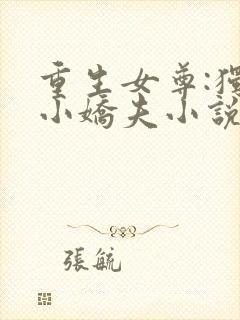 重生女尊:獨
小嬌夫小說
張毓